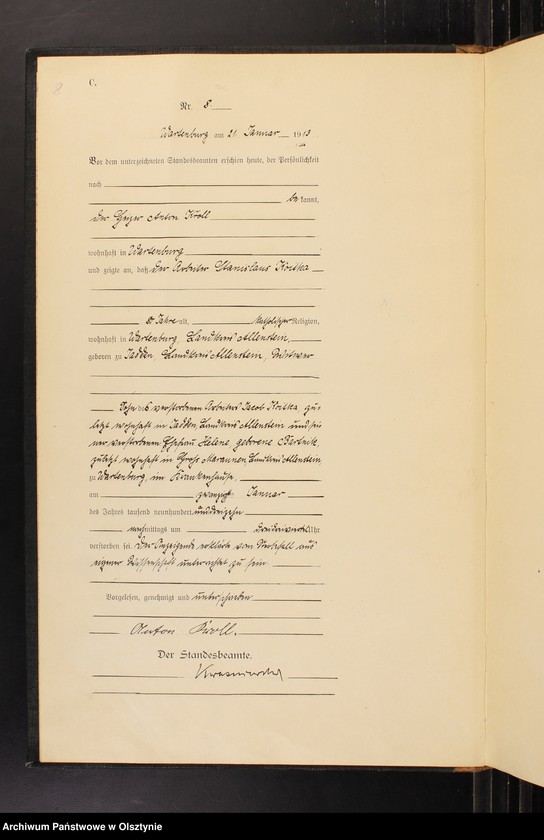 8
C.
Nr. 8
Wartenburg am 21. Januar 1913
Vor dem unterzeichneten Standesbeamten erschien heute, der Persönlichkeit
nach
be kannt,
der Anton Kroll
wohnhaft in Wartenburg
und zeigte an, daß der Arbeiter Stanislaus
Jahre alt, katholischer Religion,
wohnhaft in Wartenburg, Landkreis Allenstein,
geboren zu Jadden, Landkreis Allenstein, Witwer
Sohn des verstorbenen Arbeiters Jacob zu-
letzt wohnhaft in Jadden, Landkreis Allenstein und sei-
ner verstorbenen Ehefrau Helene geborene
zuletzt wohnhaft in Groß Landkreis Allenstein
zu Wartenburg, im Krankenhause,
am zwanzig Januar
des Jahres tausend neunhundert unddreizehn
nachmittags um dreiviertel Uhr
verstorben sei. Der Anzeigende erklärt vom Sterbefall aus
eigener Wissenschaft unterrichtet zu sein
Vorgelesen, genehmigt und unterschrieben
Anton Kroll.
Der Standesbeamte.
Archiwum Państwowe w Olsztynie